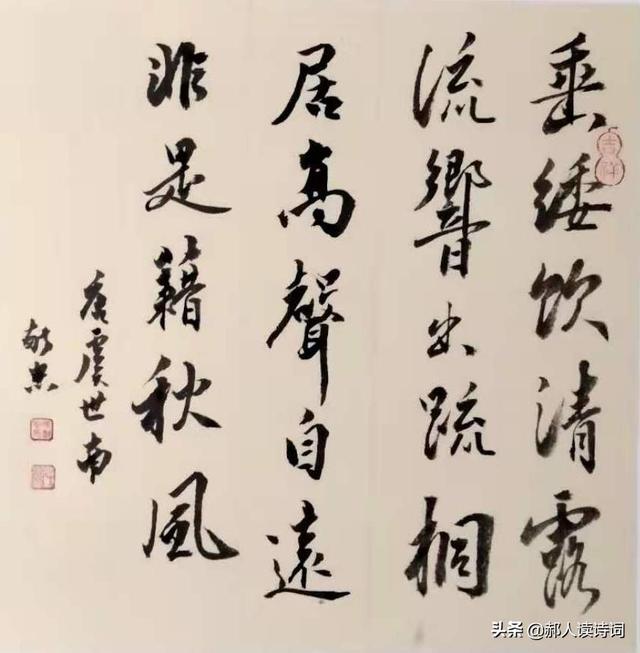 垂緌飲清露
吉祥
流響出疏桐
居高聲自遠
非是籍秋風
唐虞世南
头条 @郝人读诗词